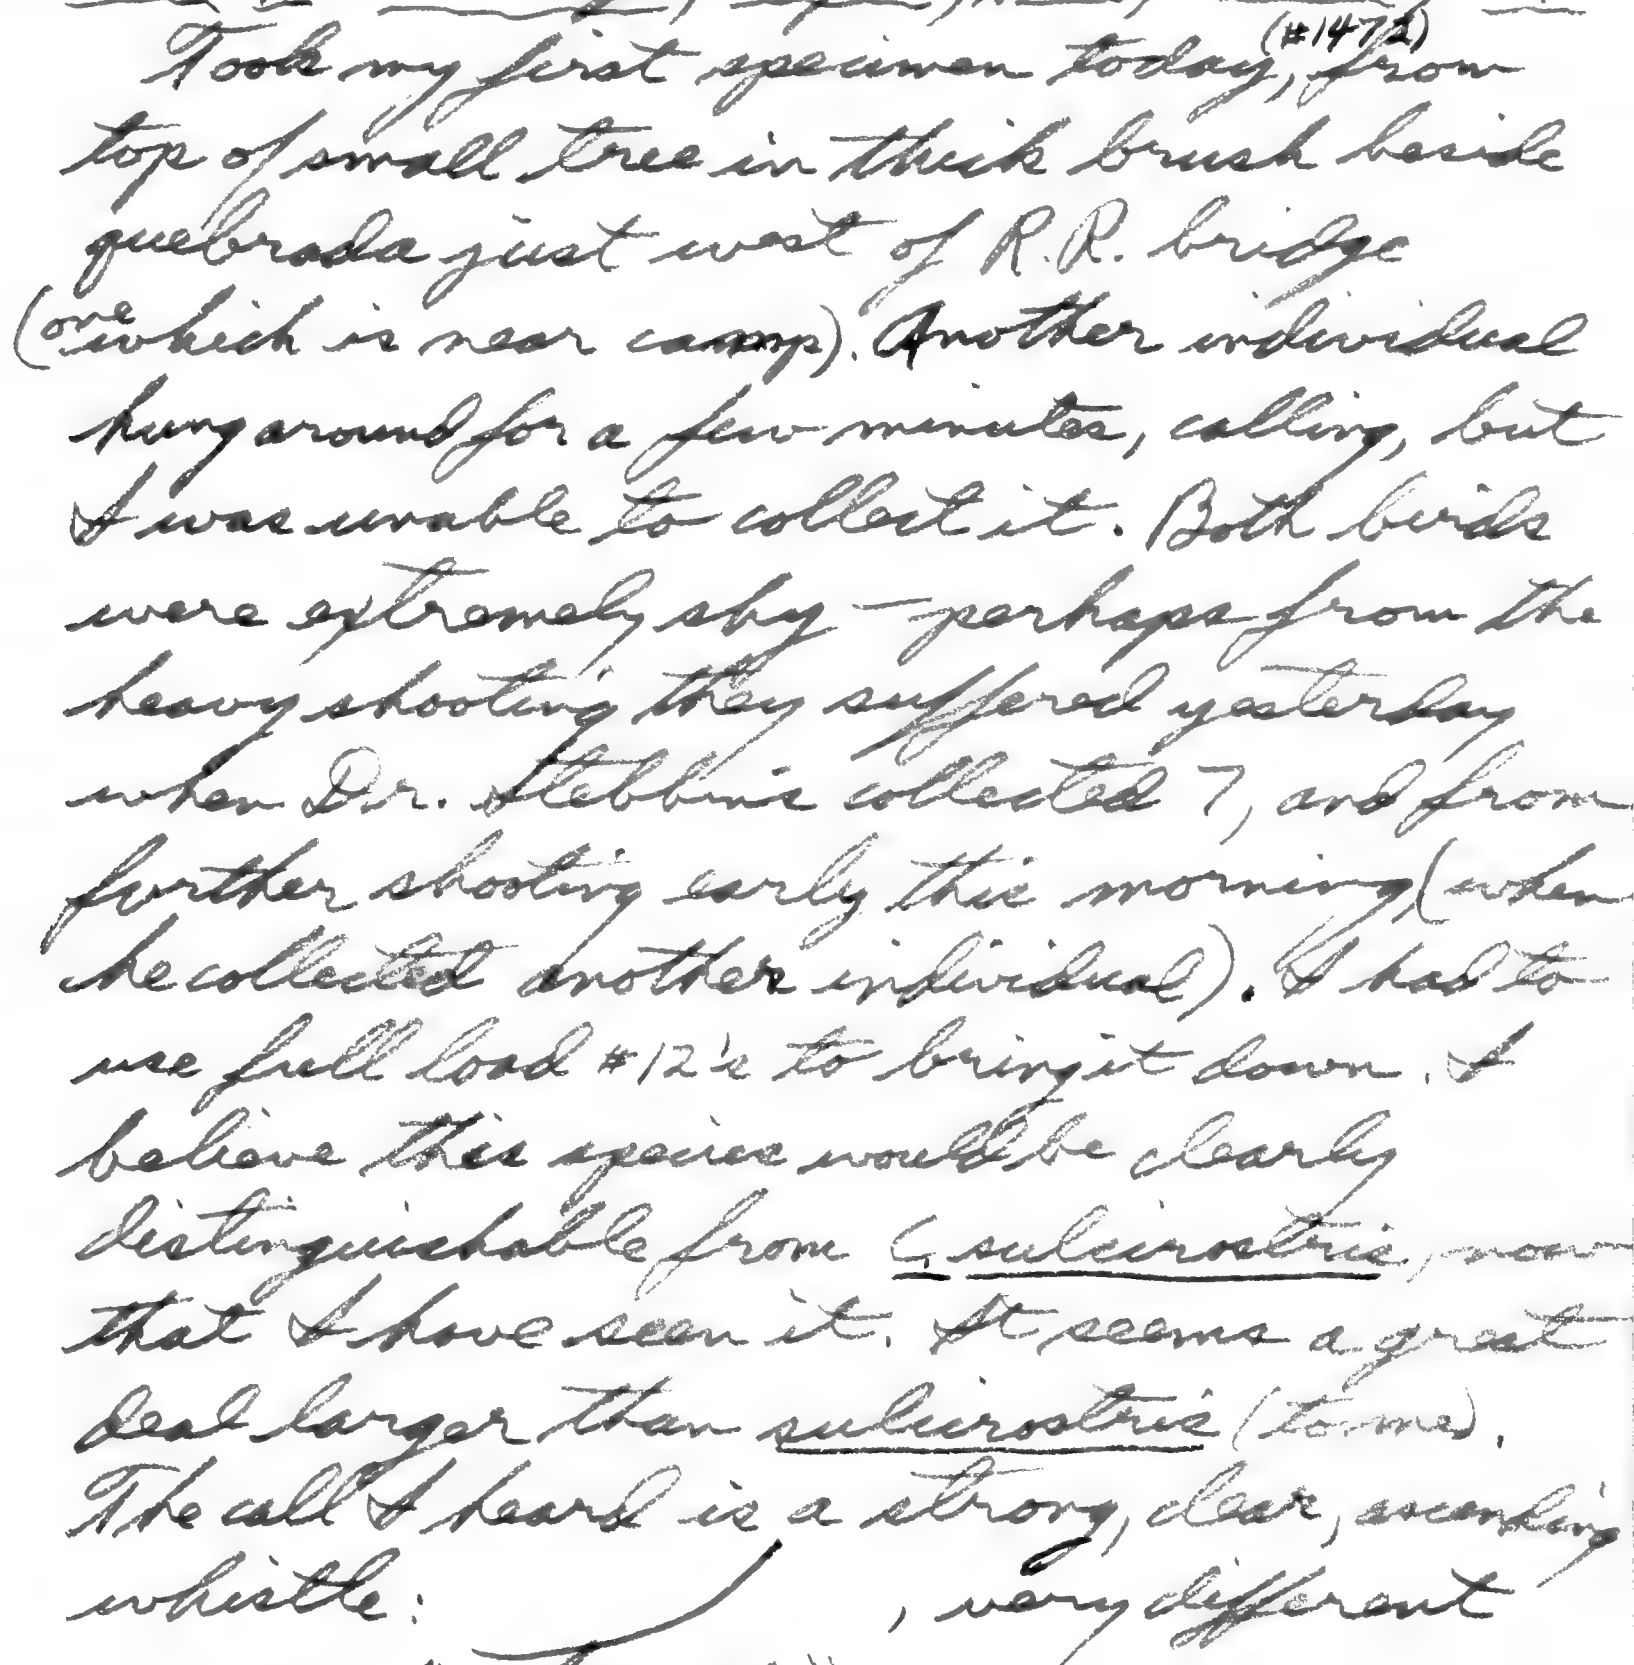 (#1472)
Took my first specimen today, from
top of small tree in thick brush beside
quebrada just west of R.R. bridge
(one which is near camp). Another individual
hung around for a few minutes, calling, but
I was unable to collect it. Both birds
were extremely shy — perhaps from the
heavy shooting they suffered yesterday
when Dr. Stebbins collected 7, and from
further shooting early this morning (when
he collected another individual). I had to
use full load #12's to bring it down. I
believe this species would be clearly
distinguishable from C. sulcirostris, now
that I have seen it. It seems a great
deal larger than sulcirostris (to me).
The call I heard is a strong, clear, ascending
whistle: , very different